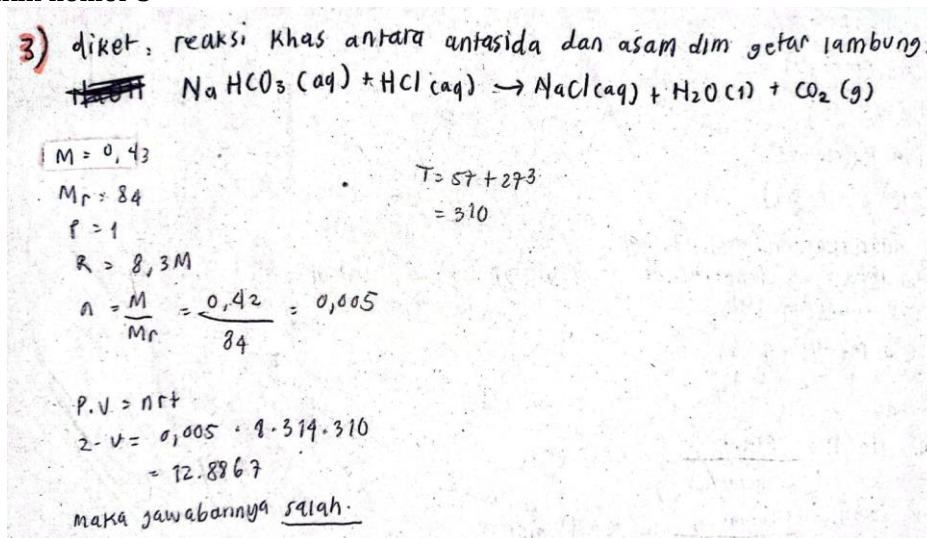 3) diket, reaksi khas antara antasida dan asam dlm getar lambung.
NaHCO3 (aq) + HCl (aq) → NaCl(aq) + H2O (l) + CO2 (g)
M = 0,43
Mr = 84
P = 1
R = 8,3M
T = 57 + 273
= 310
n = M/Mr = 0,42/84 = 0,005
P.V. = nrt
2 - V = 0,005 . 8.314.310
= 12.8867
maka jawabannya salah.